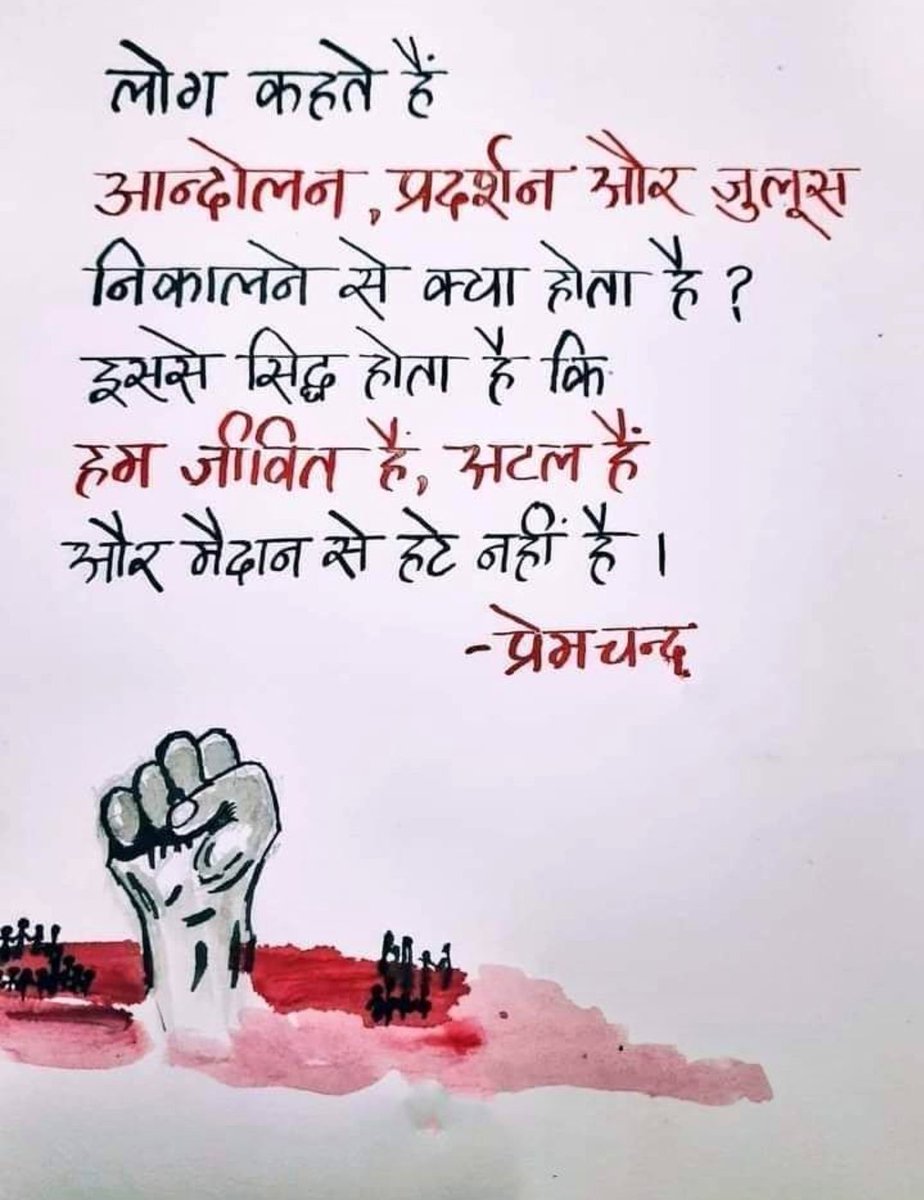 लोग कहते हैं
आन्दोलन, प्रदर्शन और जुलूस
निकालने से क्या होता है ?
इससे सिद्ध होता है कि
हम जीवित हैं, अटल हैं
और मैदान से हटे नहीं है ।
-प्रेमचन्द